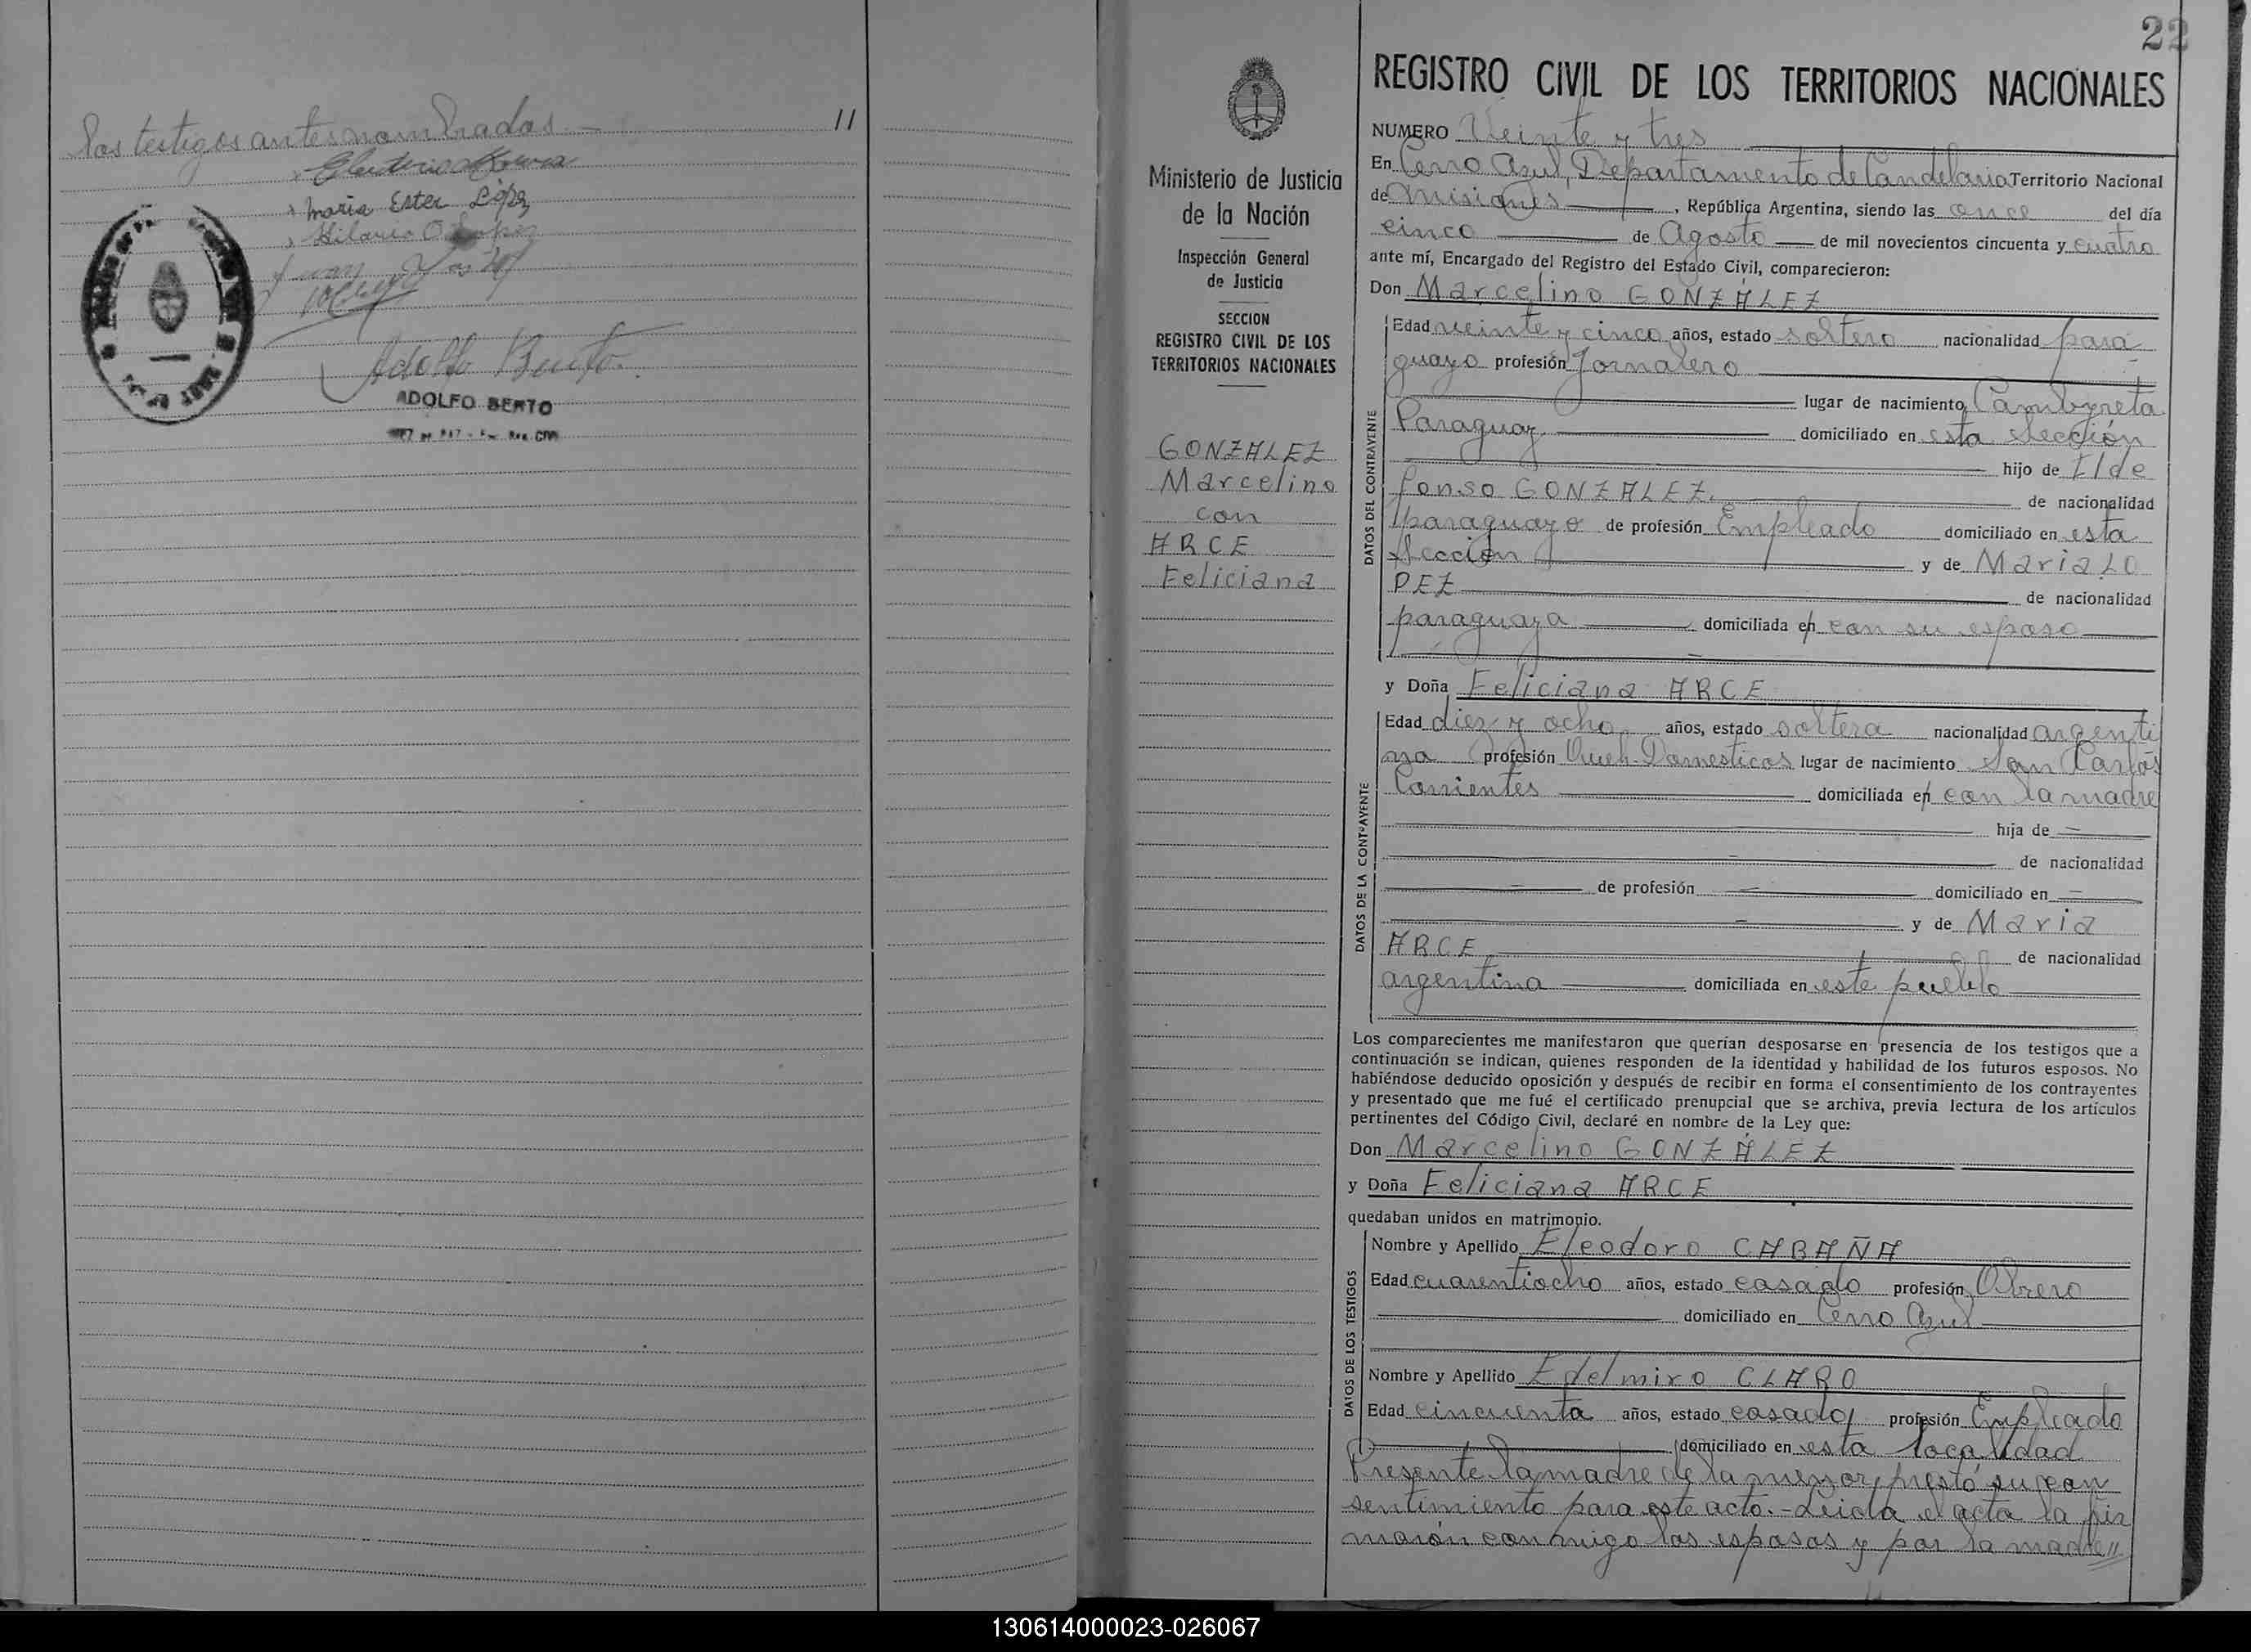 los testigos antes nombrados. — 11
Maria Ester López
Hilario O. Lopez
Juan
Adolfo Berto
ADOLFO BERTO
22
REGISTRO CIVIL DE LOS TERRITORIOS NACIONALES
Ministerio de Justicia
de la Nación
Inspección General
de Justicia
SECCION
REGISTRO CIVIL DE LOS
TERRITORIOS NACIONALES
GONZALEZ
Marcelino
con
ARCE
Feliciana
NUMERO Veinte y tres
En Cerro Azul, Departamento de Candelaria Territorio Nacional
de Misiones, República Argentina, siendo las once del día
cinco de Agosto de mil novecientos cincuenta y cuatro
ante mí, Encargado del Registro del Estado Civil, comparecieron:
Don Marcelino GONZÁLEZ
DATOS DEL CONTRAYENTE
Edad veinte y cinco años, estado soltero nacionalidad para
guayo profesión Jornalero
lugar de nacimiento Cambyreta
Paraguay. domiciliado en esta sección
hijo de Ilde
fonso GONZALEZ. de nacionalidad
paraguayo de profesión Empleado domiciliado en esta
sección y de Maria LO
PEZ de nacionalidad
paraguaya domiciliada en con su esposo
y Doña Feliciana ARCE
DATOS DE LA CONTRAYENTE
Edad diez y ocho años, estado soltera nacionalidad argenti
na profesión Queh. Domesticos lugar de nacimiento San Carlos
Corrientes domiciliada en con la madre
hija de —
— de nacionalidad
— de profesión — domiciliado en —
— y de Maria
ARCE de nacionalidad
argentina domiciliada en este pueblo
Los comparecientes me manifestaron que querían desposarse en presencia de los testigos que a
continuación se indican, quienes responden de la identidad y habilidad de los futuros esposos. No
habiéndose deducido oposición y después de recibir en forma el consentimiento de los contrayentes
y presentado que me fué el certificado prenupcial que se archiva, previa lectura de los artículos
pertinentes del Código Civil, declaré en nombre de la Ley que:
Don Marcelino GONZÁLEZ
y Doña Feliciana ARCE
quedaban unidos en matrimonio.
DATOS DE LOS TESTIGOS
Nombre y Apellido Eleodoro CABAÑA
Edad cuarentiocho años, estado casado profesión Obrero
domiciliado en Cerro Azul
Nombre y Apellido Edelmiro CLARO
Edad cincuenta años, estado casado profesión Empleado
domiciliado en esta localidad
Presente la madre de la menor, prestó su con
sentimiento para este acto.- Leida el acta la fir
maron conmigo los esposos y por la madre //
130614000023-026067